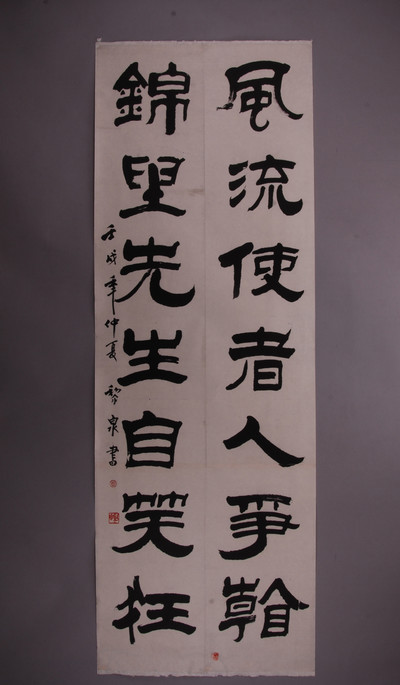 風流使者人爭看
錦里先生自笑狂
壬戌年仲夏黎泉書